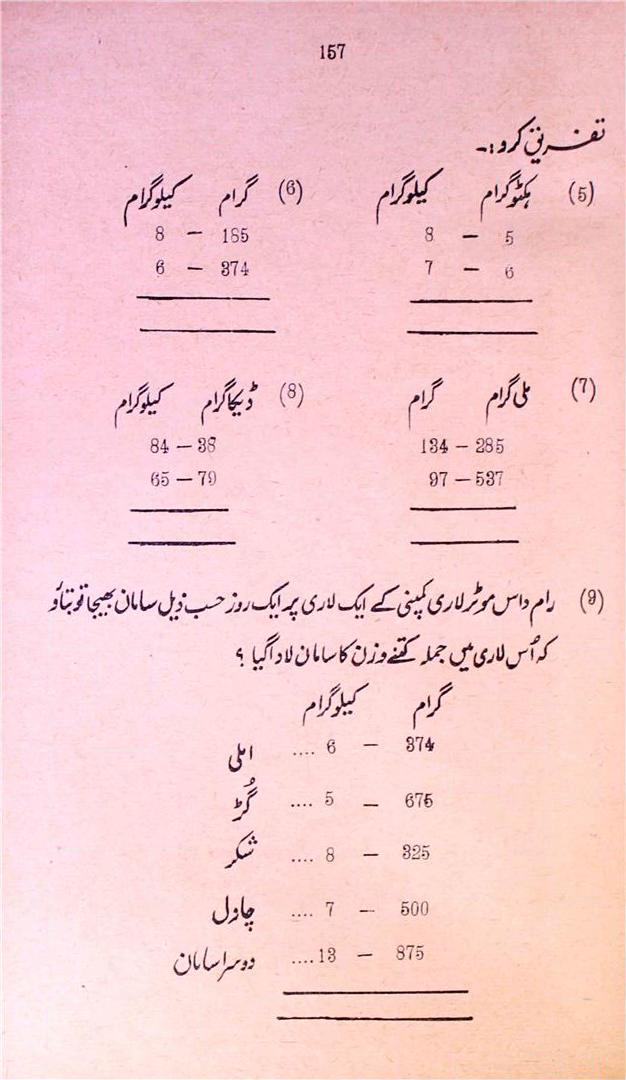 157
تفریق کرو:۔
(5) ہکٹوگرام کیلوگرام
8 — 5
7 — 6
(6) گرام کیلوگرام
8 — 185
6 — 374
(7) ملی گرام گرام
134 — 285
97 — 537
(8) ڈیکاگرام کیلوگرام
84 — 38
65 — 79
(9) رام داس موٹر لاری کمپنی کے ایک لاری پر ایک روز حسب ذیل سامان بھیجا تو بتاؤ
کہ اُس لاری میں جملہ کتنے وزن کا سامان لادا گیا ؟
گرام کیلوگرام
املی .... 6 — 374
گُڑ .... 5 — 675
شکر .... 8 — 325
چانول .... 7 — 500
دوسرا سامان .... 13 — 875